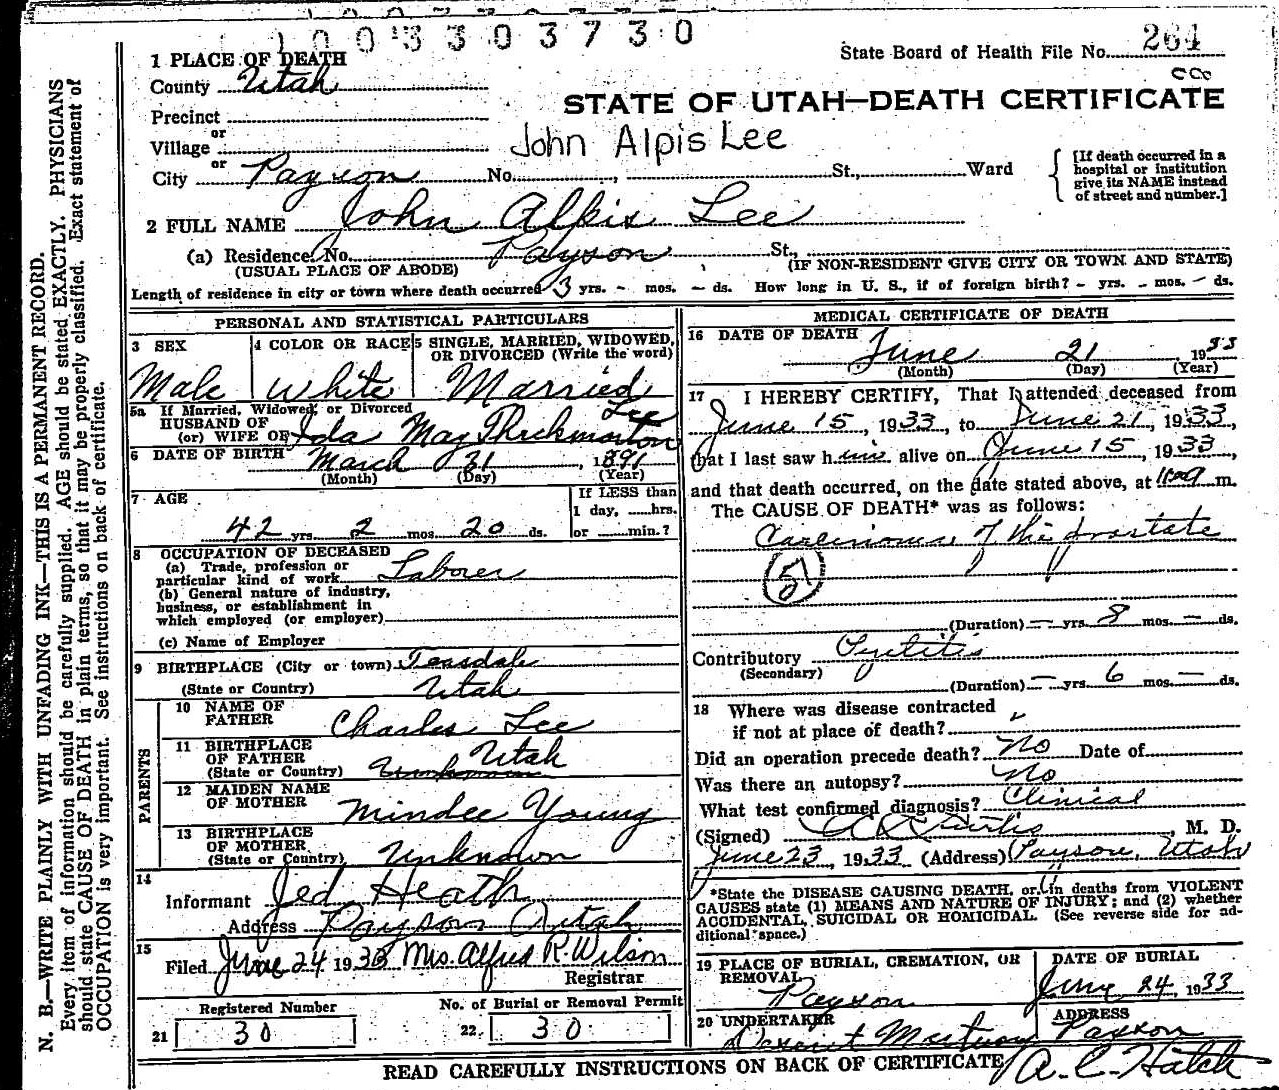 1003303730
State Board of Health File No. 264
1 PLACE OF DEATH
County Utah
STATE OF UTAH—DEATH CERTIFICATE
Precinct
or
Village
John Alpis Lee
or
City Payson No. , St., Ward
[If death occurred in a
hospital or institution
give its NAME instead
of street and number.]
2 FULL NAME John Alpis Lee
(a) Residence. No. Payson St.,
(USUAL PLACE OF ABODE) (IF NON-RESIDENT GIVE CITY OR TOWN AND STATE)
Length of residence in city or town where death occurred 3 yrs. - mos. - ds. How long in U. S., if of foreign birth? - yrs. - mos. - ds.
PERSONAL AND STATISTICAL PARTICULARS
3 SEX
Male
4 COLOR OR RACE
White
5 SINGLE, MARRIED, WIDOWED,
OR DIVORCED (Write the word)
Married
5a If Married, Widowed, or Divorced
HUSBAND OF
(or) WIFE OF Ida May Throckmorton Lee
6 DATE OF BIRTH March 31, 1891
(Month) (Day) (Year)
7 AGE
42 yrs. 2 mos. 20 ds.
If LESS than
1 day, ......hrs.
or ......min.?
8 OCCUPATION OF DECEASED
(a) Trade, profession or
particular kind of work Laborer
(b) General nature of industry,
business, or establishment in
which employed (or employer)
(c) Name of Employer
9 BIRTHPLACE (City or town) Teasdale
(State or Country) Utah
PARENTS
10 NAME OF
FATHER Charles Lee
11 BIRTHPLACE
OF FATHER Utah
(State or Country) Unknown
12 MAIDEN NAME
OF MOTHER Mindee Young
13 BIRTHPLACE
OF MOTHER
(State or Country) Unknown
14
Informant Jed Heath
Address Payson Utah
15
Filed June 24 1933 Mrs. Alfred R. Wilson
Registrar
Registered Number
21 30
No. of Burial or Removal Permit
22. 30
MEDICAL CERTIFICATE OF DEATH
16 DATE OF DEATH
June 21, 1933
(Month) (Day) (Year)
17 I HEREBY CERTIFY, That I attended deceased from
June 15, 1933, to June 21, 1933,
that I last saw him alive on June 15, 1933,
and that death occurred, on the date stated above, at m.
The CAUSE OF DEATH* was as follows:
Carcinoma of the prostate
51
(Duration) — yrs. 8 mos. — ds.
Contributory Pyelitis
(Secondary)
(Duration) — yrs. 6 mos. — ds.
18 Where was disease contracted
if not at place of death?
Did an operation precede death? No Date of
Was there an autopsy? No
What test confirmed diagnosis? Clinical
(Signed) Curtis, M. D.
June 23, 1933 (Address) Payson, Utah
*State the DISEASE CAUSING DEATH, or in deaths from VIOLENT
CAUSES state (1) MEANS AND NATURE OF INJURY; and (2) whether
ACCIDENTAL, SUICIDAL OR HOMICIDAL. (See reverse side for ad-
ditional space.)
19 PLACE OF BURIAL, CREMATION, OR
REMOVAL
Payson
DATE OF BURIAL
June 24, 1933
20 UNDERTAKER
Mortuary
ADDRESS
Payson
A. C. Hatch
READ CAREFULLY INSTRUCTIONS ON BACK OF CERTIFICATE
N. B.—WRITE PLAINLY WITH UNFADING INK—THIS IS A PERMANENT RECORD.
Every item of information should be carefully supplied. AGE should be stated EXACTLY. PHYSICIANS
should state CAUSE OF DEATH in plain terms, so that it may be properly classified. Exact statement of
OCCUPATION is very important. See instructions on back of certificate.